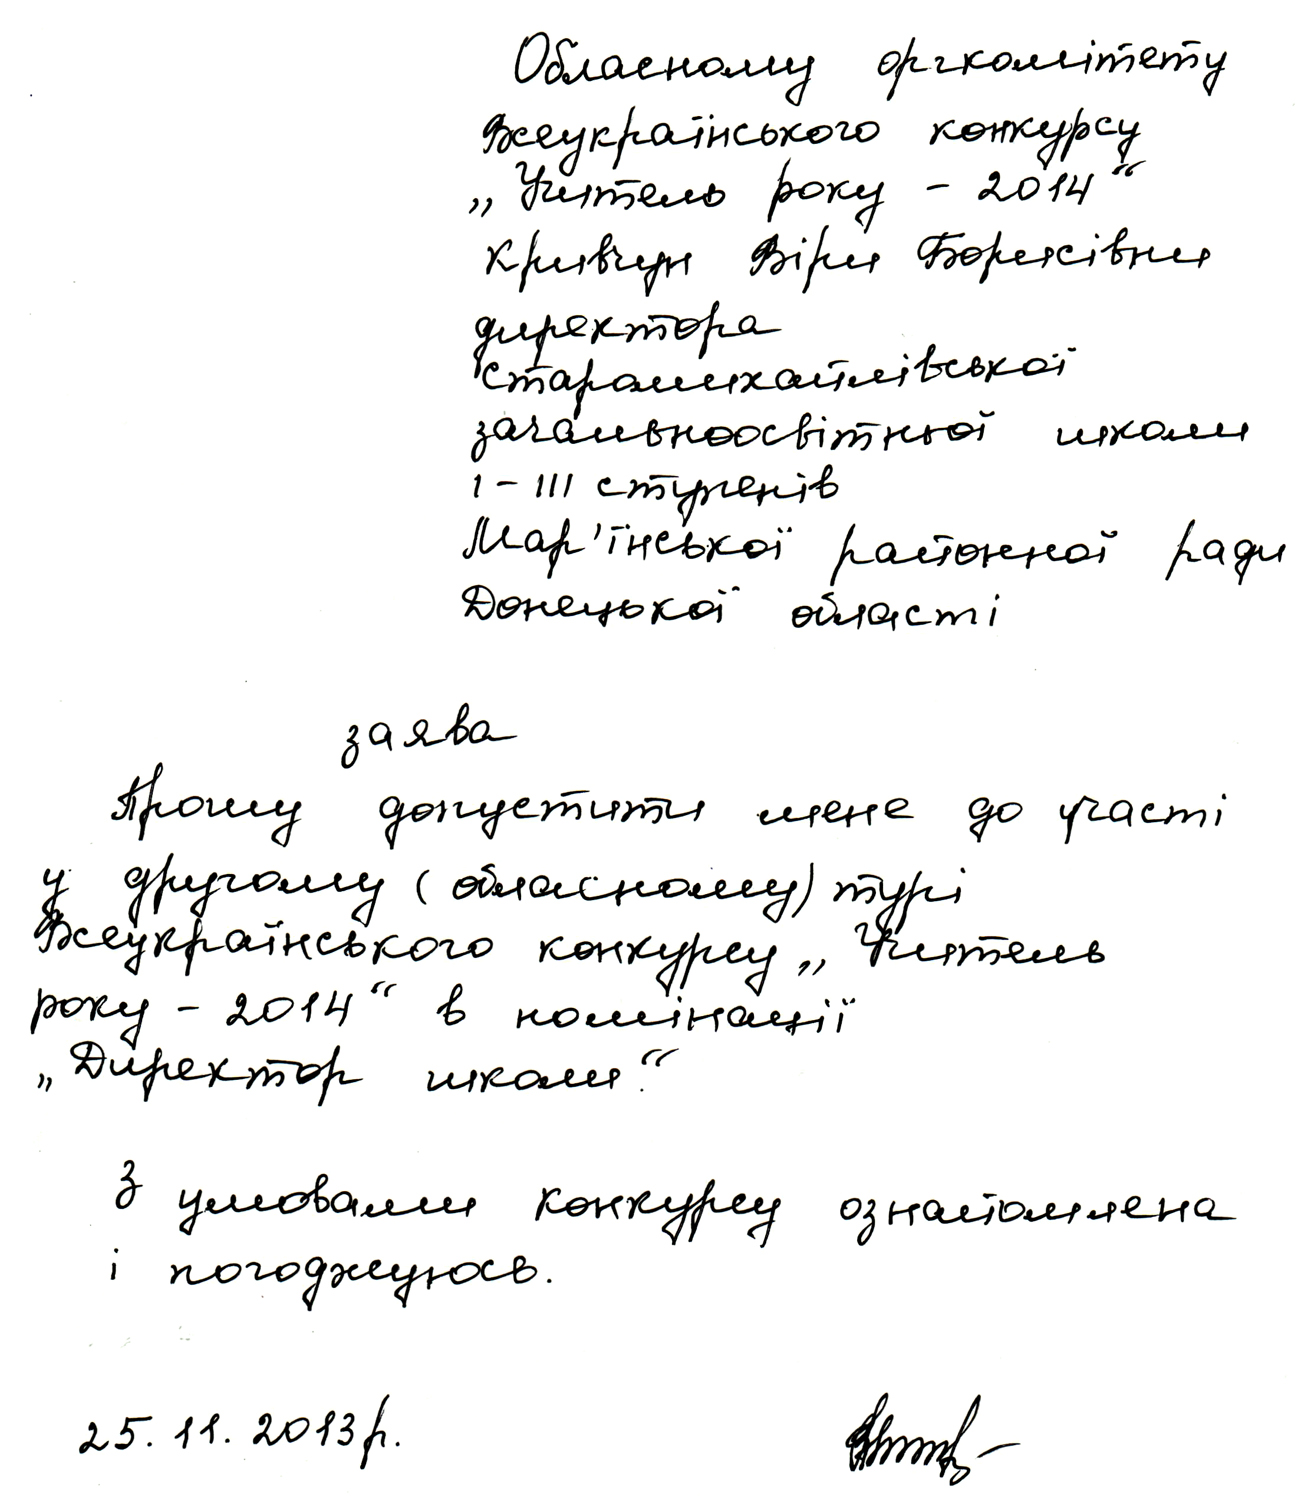 Обласному оргкомітету
Всеукраїнського конкурсу
„Учитель року – 2014“
Кривчун Віри Борисівни
директора
Старомихайлівської
загальноосвітньої школи
І – ІІІ ступенів
Мар'їнської районної ради
Донецької області
заява
Прошу допустити мене до участі
у другому (обласному) турі
Всеукраїнського конкурсу „Учитель
року – 2014“ в номінації
„Директор школи“.
З умовами конкурсу ознайомлена
і погоджуюсь.
25.11.2013р.